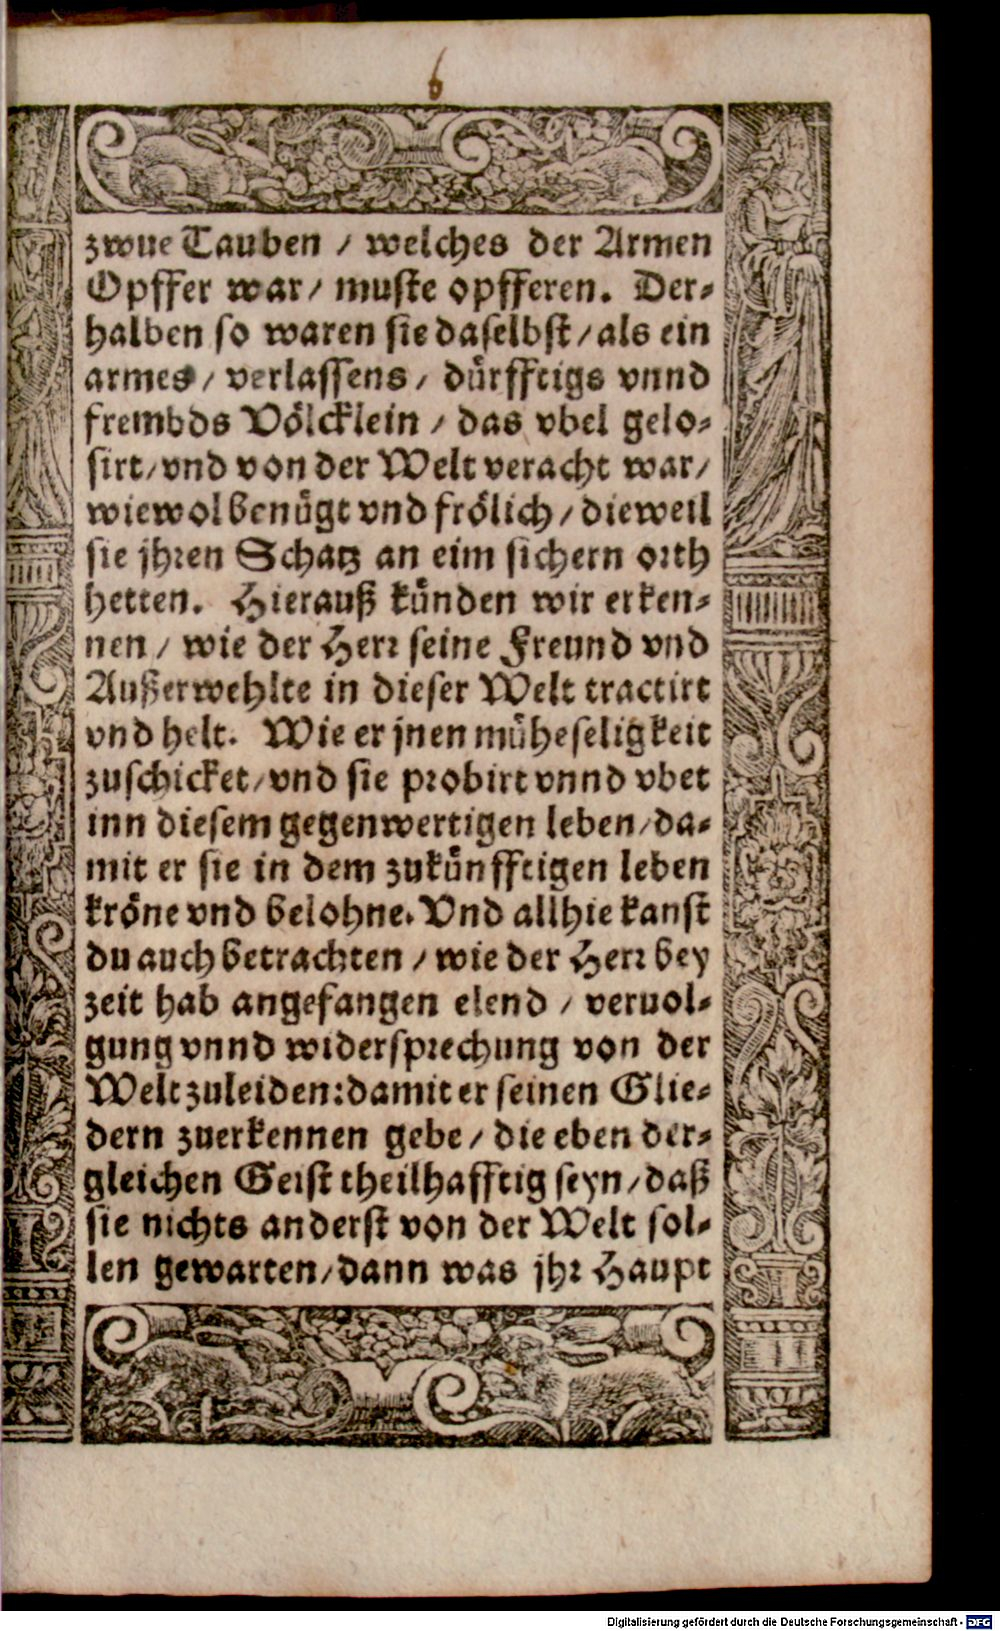 6
zwue Tauben / welches der Armen
Opffer war / muste opfferen. Der-
halben so waren sie daselbst / als ein
armes / verlassens / dürfftigs vnnd
frembds Völcklein / das vbel gelo-
sirt / vnd von der Welt veracht war /
wiewol benügt vnd frölich / dieweil
sie jhren Schatz an eim sichern orth
hetten. Hierauß künden wir erken-
nen / wie der Herr seine Freund vnd
Außerwehlte in dieser Welt tractirt
vnd helt. Wie er jnen müheseligkeit
zuschicket / vnd sie probirt vnnd vbet
inn diesem gegenwertigen leben / da-
mit er sie in dem zukünfftigen leben
kröne vnd belohne. Vnd allhie kanst
du auch betrachten / wie der Herr bey
zeit hab angefangen elend / veruol-
gung vnnd widersprechung von der
Welt zuleiden: damit er seinen Glie-
dern zuerkennen gebe / die eben der-
gleichen Geist theilhafftig seyn / daß
sie nichts anderst von der Welt sol-
len gewarten / dann was jhr Haupt
Digitalisierung gefördert durch die Deutsche Forschungsgemeinschaft - DFG